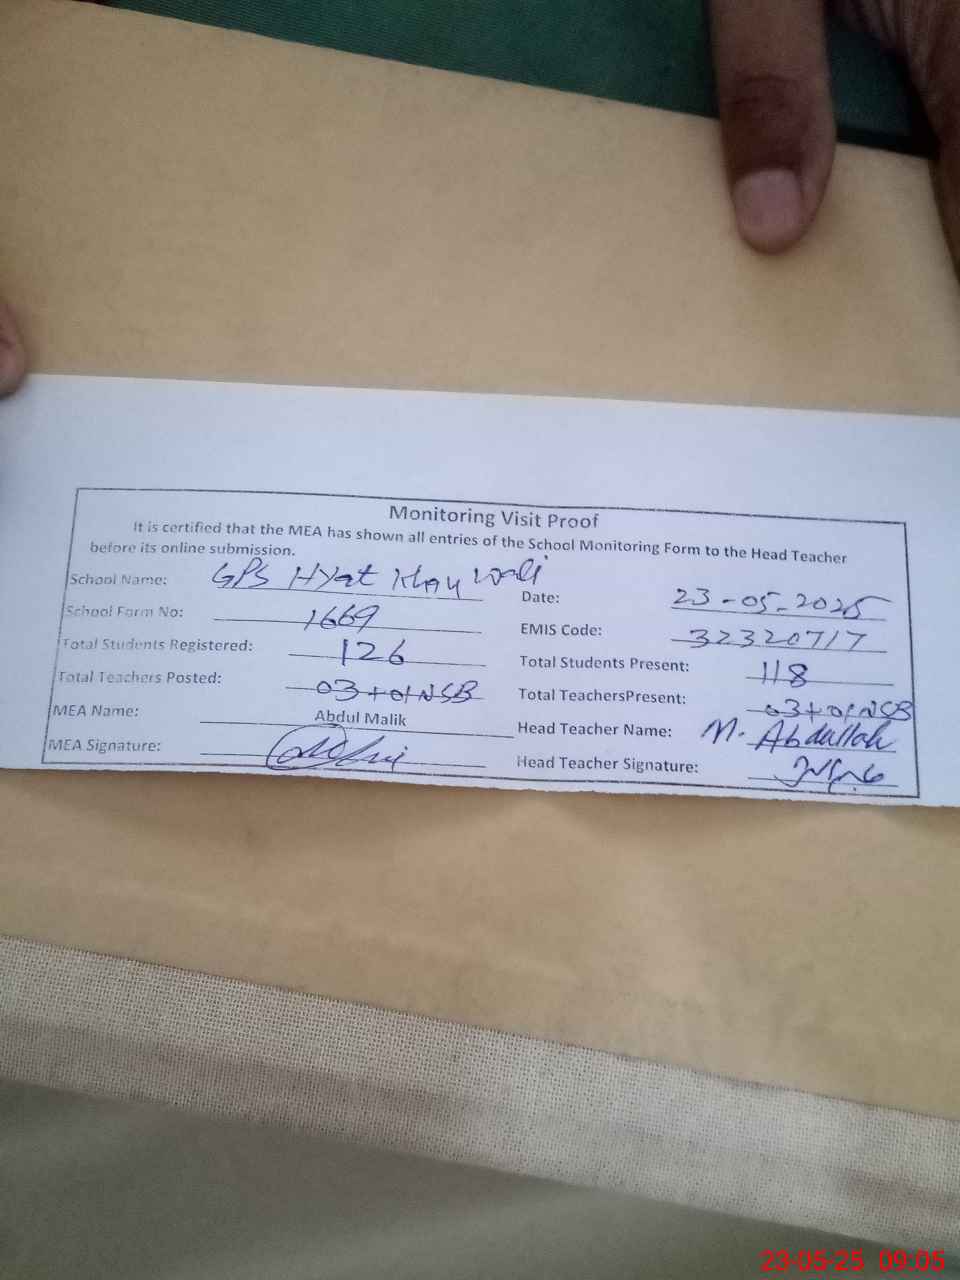 Monitoring Visit Proof
It is certified that the MEA has shown all entries of the School Monitoring Form to the Head Teacher
before its online submission.
School Name: GPS Hyat Khan wali
Date: 23-05-2025
School Form No: 1669
EMIS Code: 32320717
Total Students Registered: 126
Total Students Present: 118
Total Teachers Posted: 03+01NSB
Total TeachersPresent: 03+01NSB
MEA Name: Abdul Malik
Head Teacher Name: M. Abdullah
MEA Signature:
Head Teacher Signature:
23-05-25 09:05